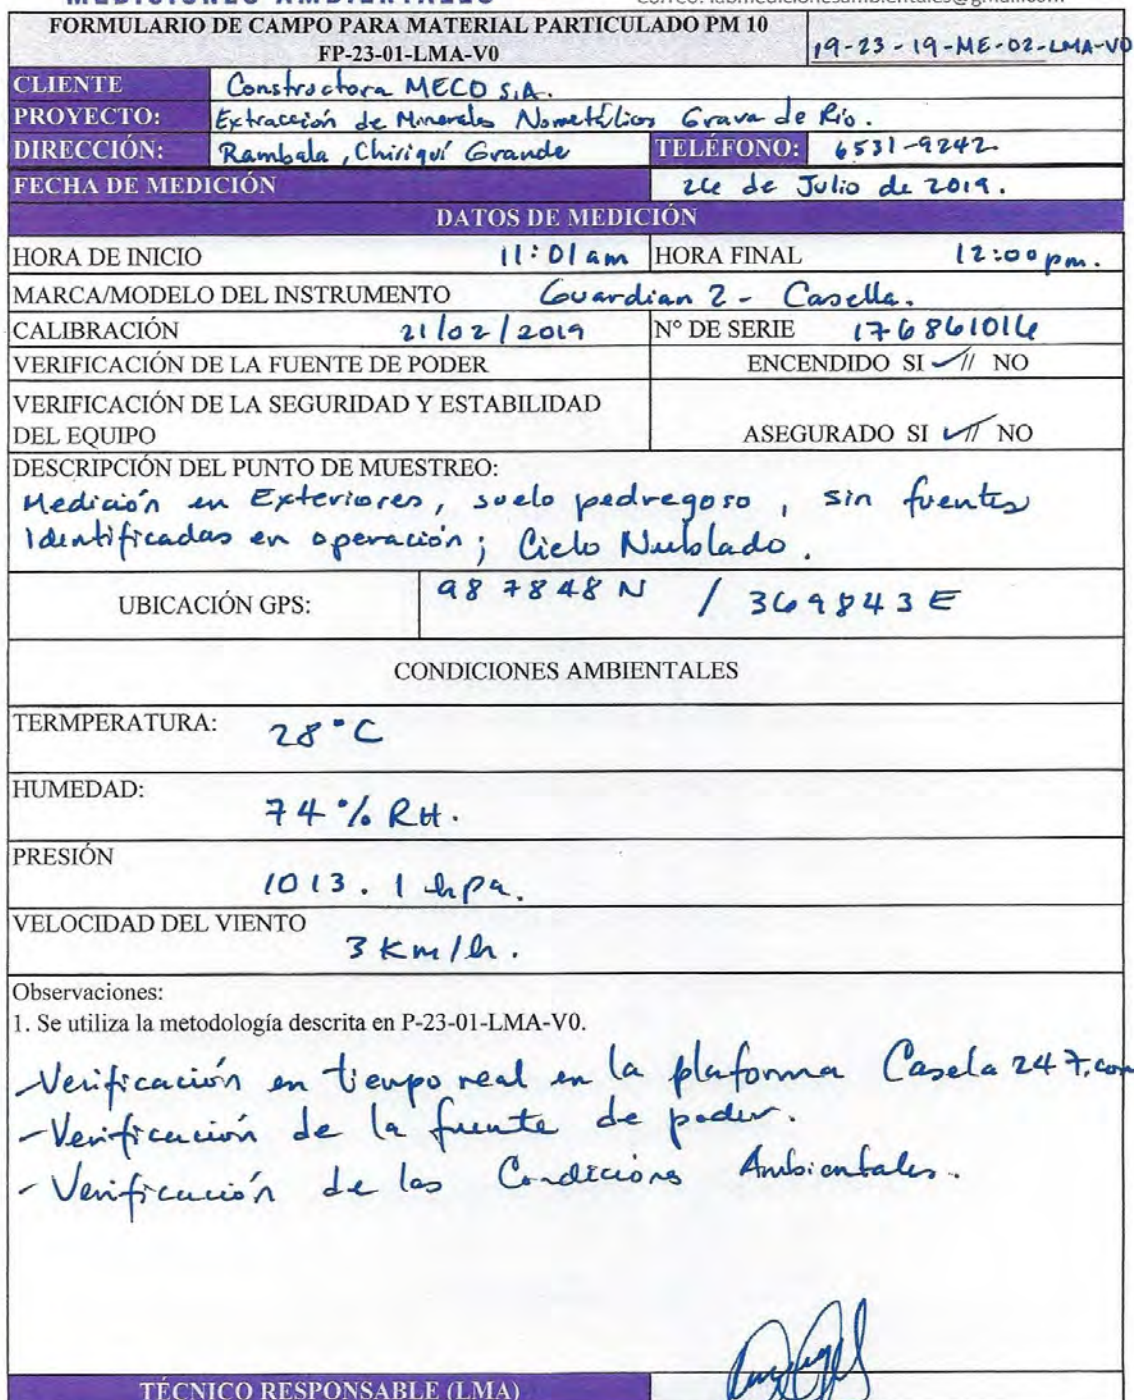 MEDICIONES AMBIENTALES Correo: labmedicionesambientales@gmail.com
FORMULARIO DE CAMPO PARA MATERIAL PARTICULADO PM 10
FP-23-01-LMA-V0
19-23-19-ME-02-LMA-V0
CLIENTE Constructora MECO S.A.
PROYECTO: Extracción de Minerales Nometálicos Grava de Río.
DIRECCIÓN: Rambala, Chiriquí Grande TELÉFONO: 6531-9242
FECHA DE MEDICIÓN 26 de Julio de 2019.
DATOS DE MEDICIÓN
HORA DE INICIO 11:01 am HORA FINAL 12:00 pm.
MARCA/MODELO DEL INSTRUMENTO Guardian 2 - Casella.
CALIBRACIÓN 21/02/2019 N° DE SERIE 176861016
VERIFICACIÓN DE LA FUENTE DE PODER ENCENDIDO SI ✓// NO
VERIFICACIÓN DE LA SEGURIDAD Y ESTABILIDAD
DEL EQUIPO ASEGURADO SI ✓// NO
DESCRIPCIÓN DEL PUNTO DE MUESTREO:
Medición en Exteriores, suelo pedregoso, sin fuentes
Identificadas en operación; Cielo Nublado.
UBICACIÓN GPS: 987848 N / 369843 E
CONDICIONES AMBIENTALES
TERMPERATURA: 28°C
HUMEDAD:
74% RH.
PRESIÓN
1013.1 hpa.
VELOCIDAD DEL VIENTO
3 Km/h.
Observaciones:
1. Se utiliza la metodología descrita en P-23-01-LMA-V0.
-Verificación en tiempo real en la plaforma Casela 247.com
-Verificación de la fuente de poder.
-Verificación de las Condicions Ambientales.
TÉCNICO RESPONSABLE (LMA)